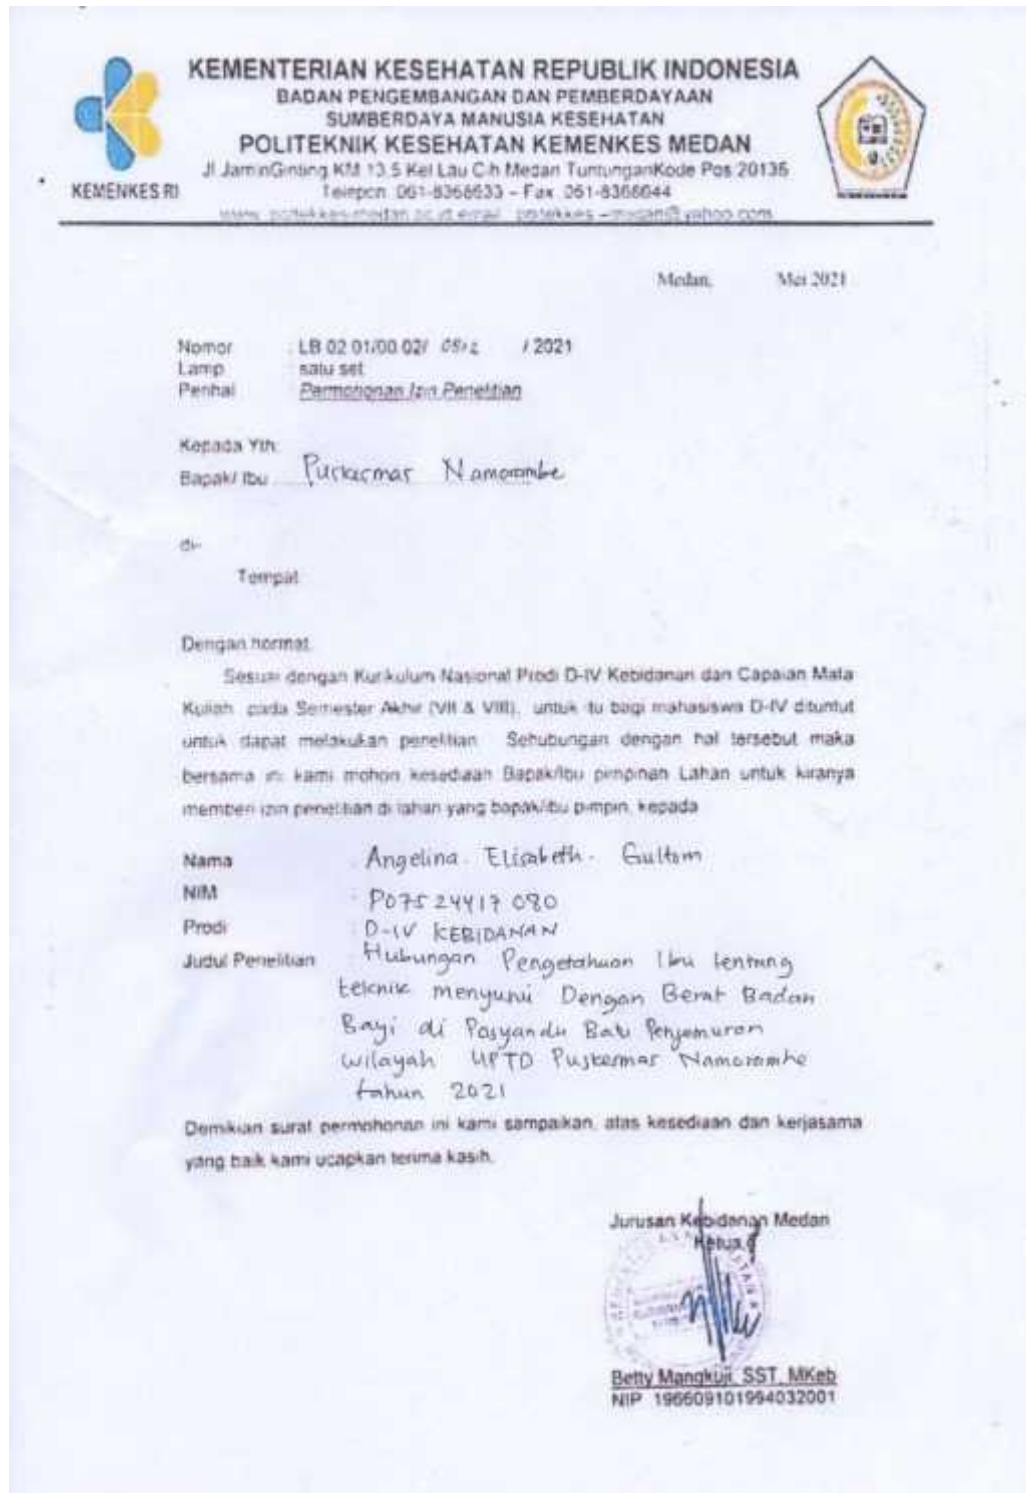 KEMENTERIAN KESEHATAN REPUBLIK INDONESIA
BADAN PENGEMBANGAN DAN PEMBERDAYAAN
SUMBERDAYA MANUSIA KESEHATAN
POLITEKNIK KESEHATAN KEMENKES MEDAN
Jl JaminGinting KM 13.5 Kel Lau Cih Medan TuntunganKode Pos 20136
Telepon 061-8368633 – Fax 061-8368644
KEMENKES RI
Medan, Mei 2021
Nomor : LB 02 01/00 02/ / 2021
Lamp : satu set
Perihal : Permohonan Izin Penelitian
Kepada Yth:
Bapak/ Ibu Puskesmas Namorambe
di-
Tempat
Dengan hormat,
Sesuai dengan Kurikulum Nasional Prodi D-IV Kebidanan dan Capaian Mata
Kuliah pada Semester Akhir (VII & VIII), untuk itu bagi mahasiswa D-IV dituntut
untuk dapat melakukan penelitian. Sehubungan dengan hal tersebut maka
bersama ini kami mohon kesediaan Bapak/Ibu pimpinan Lahan untuk kiranya
memberi izin penelitian di lahan yang bapak/ibu pimpin, kepada
Nama : Angelina. Elisabeth. Gultom
NIM : P07524417 080
Prodi : D-IV KEBIDANAN
Judul Penelitian : Hubungan Pengetahuan Ibu tentang
teknik menyusui Dengan Berat Badan
Bayi di Posyandu Batu Penjemuran
wilayah UPTD Puskesmas Namorambe
tahun 2021
Demikian surat permohonan ini kami sampaikan, atas kesediaan dan kerjasama
yang baik kami ucapkan terima kasih.
Jurusan Kebidanan Medan
Ketua
Betty Mangkuji, SST, MKeb
NIP 196609101994032001